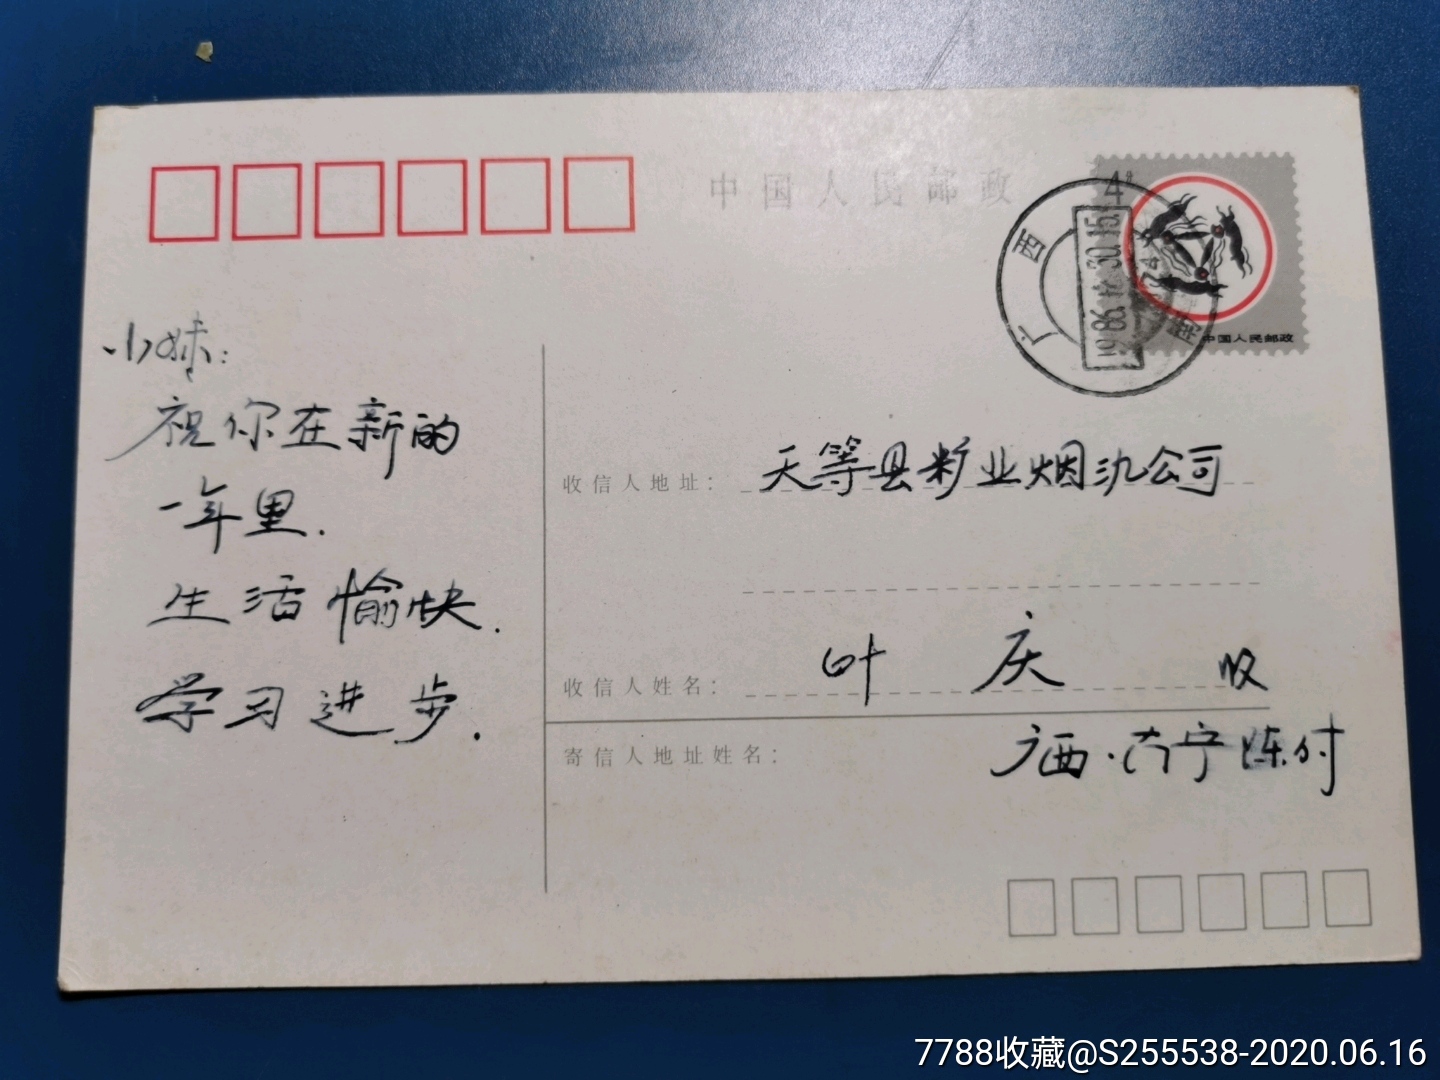 中国人民邮政
4分
中国人民邮政
广西
1986.12.30.15
小妹:
祝你在新的
一年里.
生活愉快.
学习进步.
收信人地址: 天等县矿业烟氿公司
收信人姓名: 叶 庆 收
寄信人地址姓名: 广西·南宁 陈付
7788收藏@S255538-2020.06.16